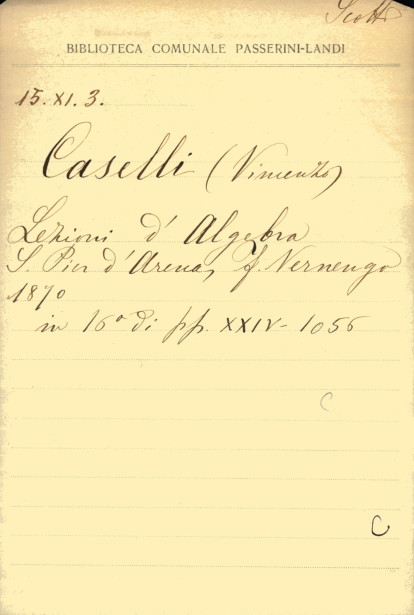 Scotti
BIBLIOTECA COMUNALE PASSERINI-LANDI
15. XI. 3.
Caselli (Vincenzo)
Lezioni d'Algebra
S. Pier d'Arena, f. Vernengo
1870
in 16° di pp. XXIV-1056
C
C